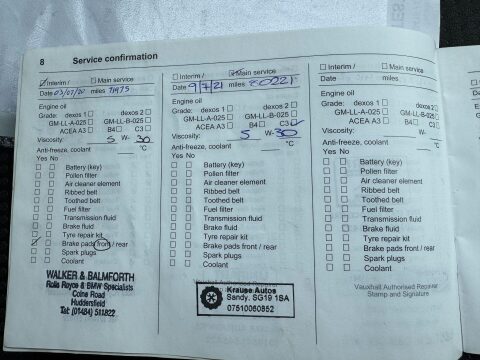 8 Service confirmation
Interim / Main service
Date 03/07/20 miles 71975
Engine oil
Grade: dexos 1 dexos 2
GM-LL-A-025 GM-LL-B-025
ACEA A3 B4 C3
Viscosity: 5 W- 30
Anti-freeze, coolant °C
Yes No
Battery (key)
Pollen filter
Air cleaner element
Ribbed belt
Toothed belt
Fuel filter
Transmission fluid
Brake fluid
Tyre repair kit
Brake pads front / rear
Spark plugs
Coolant
WALKER & BALMFORTH
Rolls Royce & BMW Specialists
Colne Road
Huddersfield
Tel: (01484) 511822
Interim / Main service
Date 9/7/21 miles 80221
Engine oil
Grade: dexos 1 dexos 2
GM-LL-A-025 GM-LL-B-025
ACEA A3 B4 C3
Viscosity: 5 W- 30
Anti-freeze, coolant °C
Yes No
Battery (key)
Pollen filter
Air cleaner element
Ribbed belt
Toothed belt
Fuel filter
Transmission fluid
Brake fluid
Tyre repair kit
Brake pads front / rear
Spark plugs
Coolant
Krause Autos
Sandy. SG19 1SA
07510050852
Interim / Main service
Date miles
Engine oil
Grade: dexos 1 dexos 2
GM-LL-A-025 GM-LL-B-025
ACEA A3 B4 C3
Viscosity: W-
Anti-freeze, coolant °C
Yes No
Battery (key)
Pollen filter
Air cleaner element
Ribbed belt
Toothed belt
Fuel filter
Transmission fluid
Brake fluid
Tyre repair kit
Brake pads front / rear
Spark plugs
Coolant
Vauxhall Authorised Repairer
Stamp and Signature